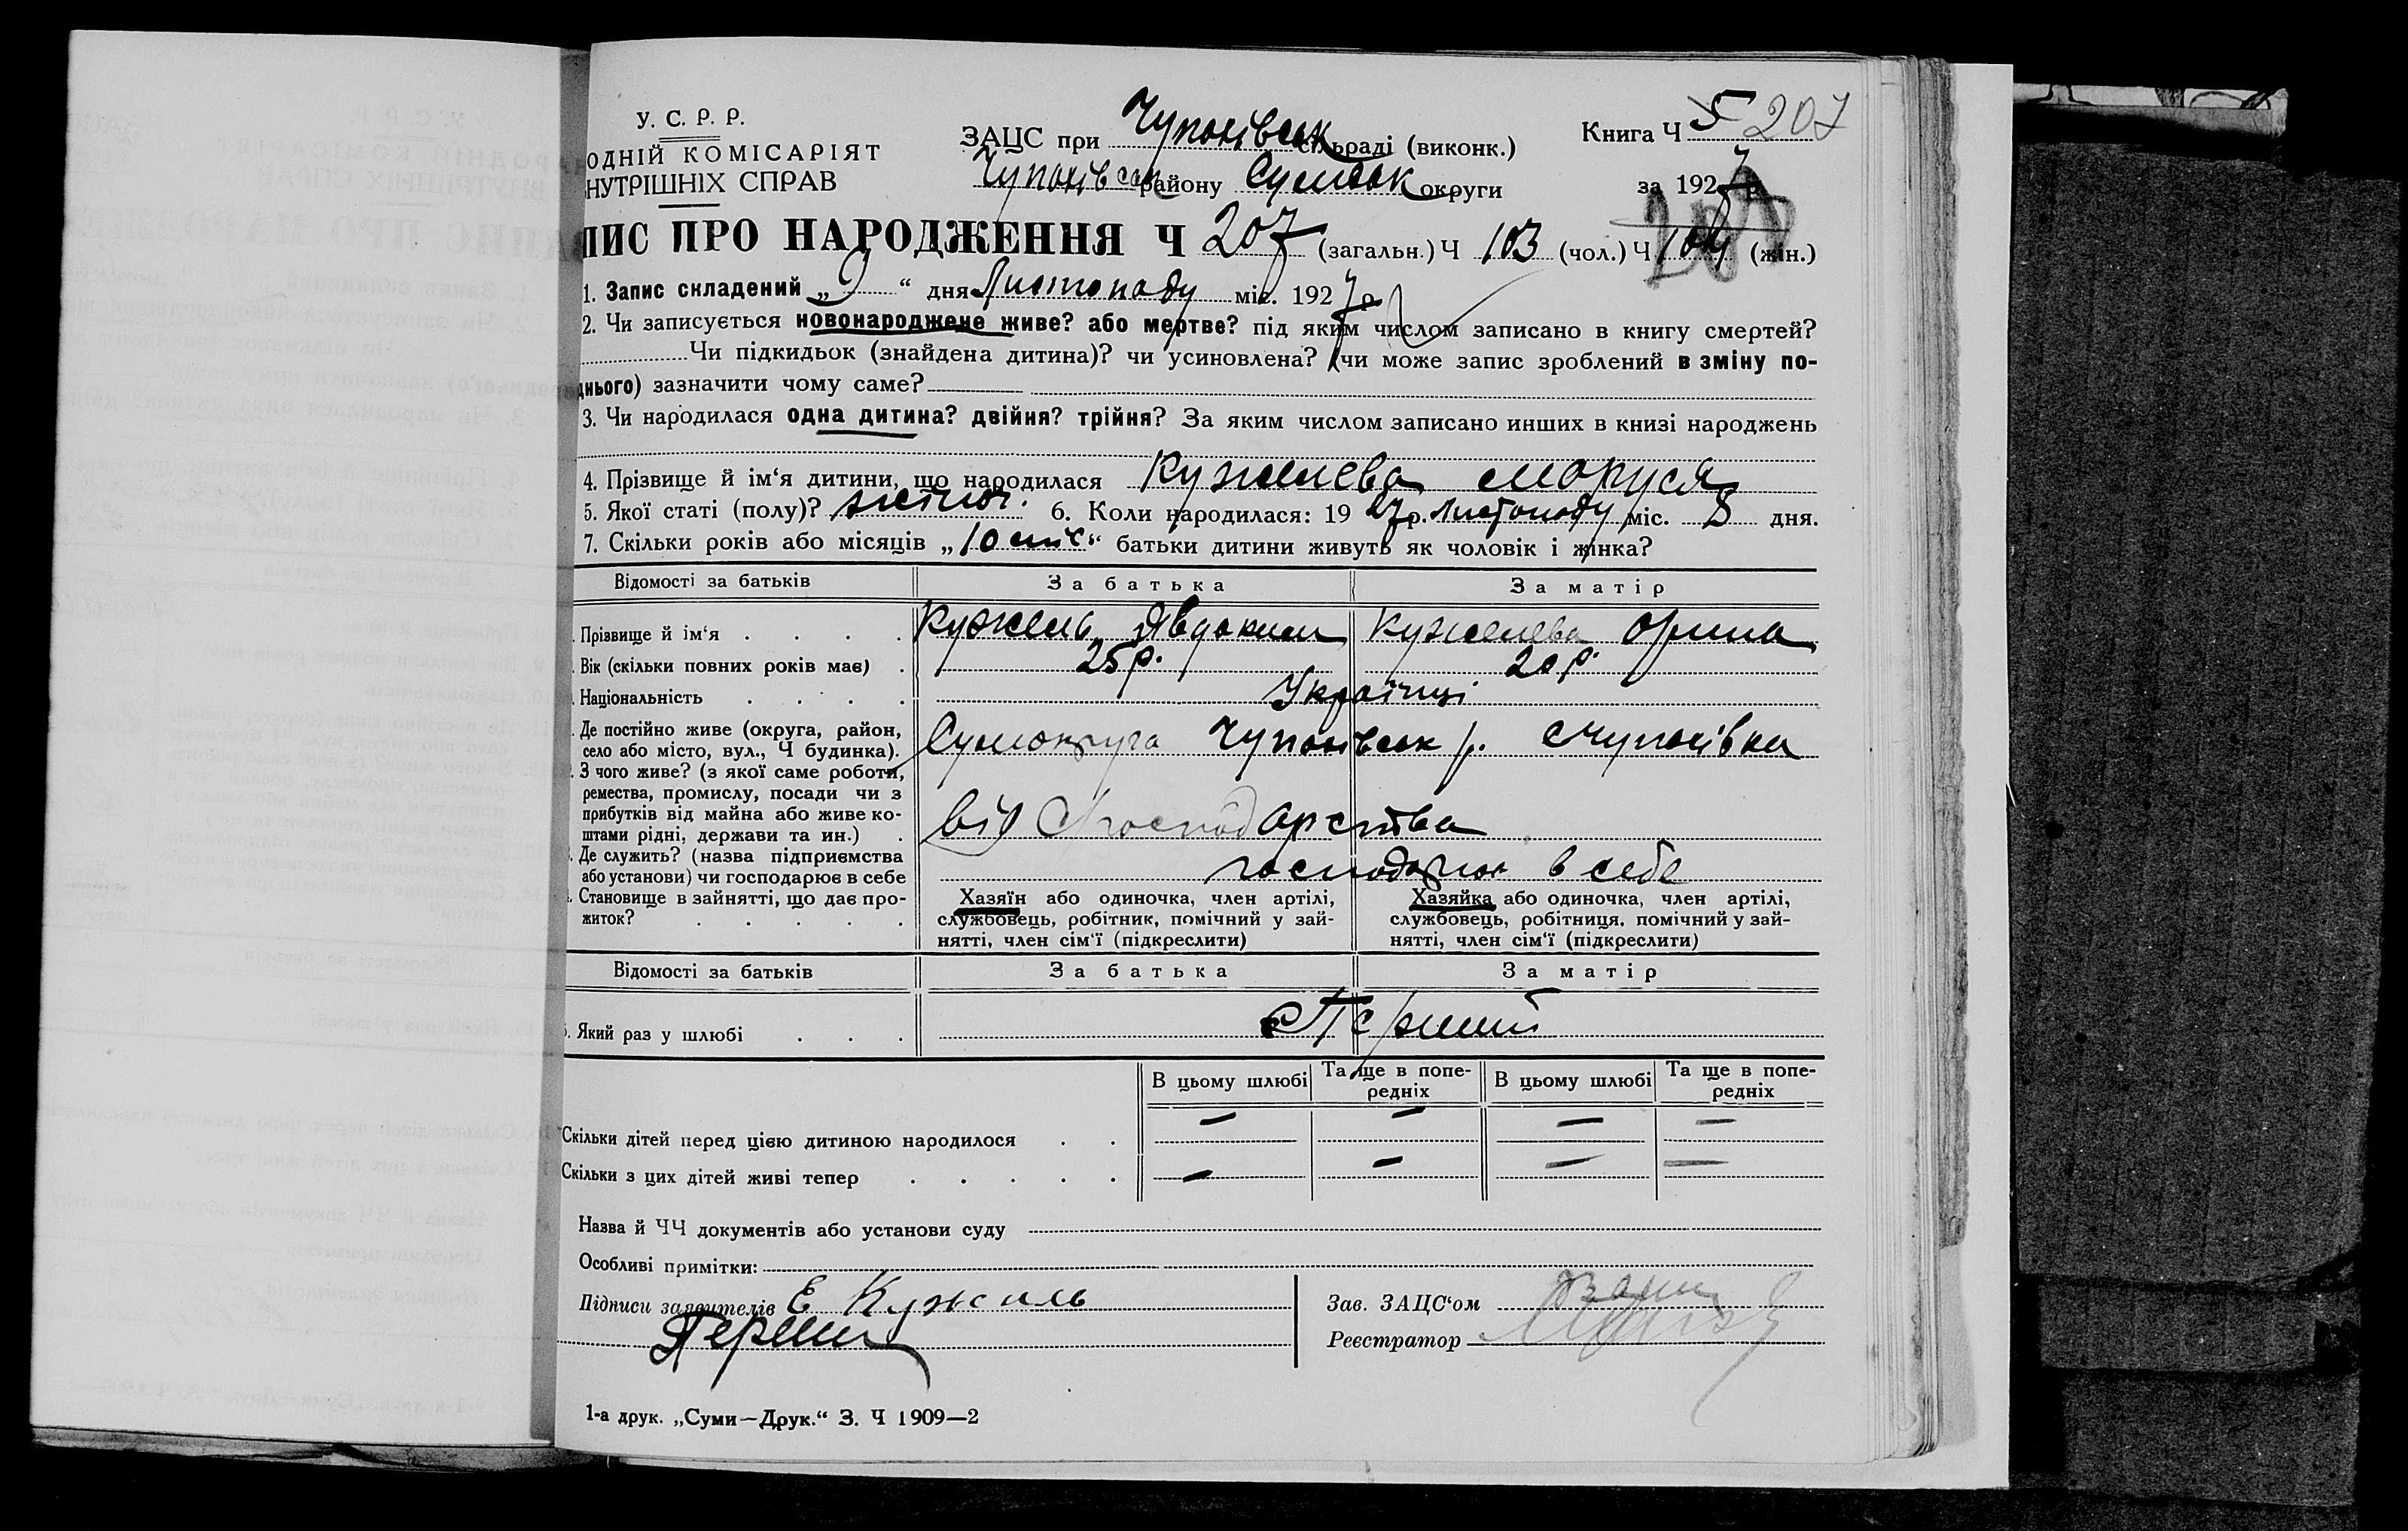 У. С. Р. Р.
ОДНІЙ КОМІСАРІЯТ
НУТРІШНІХ СПРАВ
ЗАЦС при Чупахівськ сільраді (виконк.)
Чупахівськ району Сумськ округи
Книга Ч 5 207
за 1927 р.
207
ПИС ПРО НАРОДЖЕННЯ Ч 207 (загальн.) Ч 103 (чол.) Ч 104 (жін.)
1. Запис складений „ 9 “ дня Листопаду міс. 1927 р.
2. Чи записується новонароджене живе? або мертве? під яким числом записано в книгу смертей?
Чи підкидьок (знайдена дитина)? чи усиновлена? (чи може запис зроблений в зміну по-
днього) зазначити чому саме?
3. Чи народилася одна дитина? двійня? трійня? За яким числом записано инших в книзі народжень
4. Прізвище й ім‘я дитини, що народилася Кужилєва Маруся
5. Якої статі (полу)? жіноч. 6. Коли народилася: 19 27р. Листопаду міс. 8 дня.
7. Скільки років або місяців „10 міс“ батьки дитини живуть як чоловік і жінка?
Відомості за батьків За батька За матір
Прізвище й ім‘я Кужель Явдоким Кужелева Орина
Вік (скільки повних років має) 25 р. 20 р.
Національність Українці
Де постійно живе (округа, район,
село або місто, вул., Ч будинка). Сумокруга Чупахівськ р. с Чупахівка
З чого живе? (з якої саме роботи,
ремества, промислу, посади чи з
прибутків від майна або живе ко-
штами рідні, держави та ин.) від Господарства
Де служить? (назва підприємства
або установи) чи господарює в себе господарює в себе
Становище в зайнятті, що дає про-
житок?
Хазяїн або одиночка, член артілі,
службовець, робітник, помічний у зай-
нятті, член сім‘ї (підкреслити)
Хазяйка або одиночка, член артілі,
службовець, робітниця, помічний у зай-
нятті, член сім‘ї (підкреслити)
Відомості за батьків За батька За матір
Який раз у шлюбі Перший
В цьому шлюбі Та ще в попе-
редніх В цьому шлюбі Та ще в попе-
редніх
Скільки дітей перед цією дитиною народилося — — — —
Скільки з цих дітей живі тепер — — — —
Назва й ЧЧ документів або установи суду
Особливі примітки:
Підписи заявителів Е Кужиль
Зав. ЗАЦС‘ом
Реєстратор
1-а друк. „Суми—Друк.“ З. Ч 1909—2